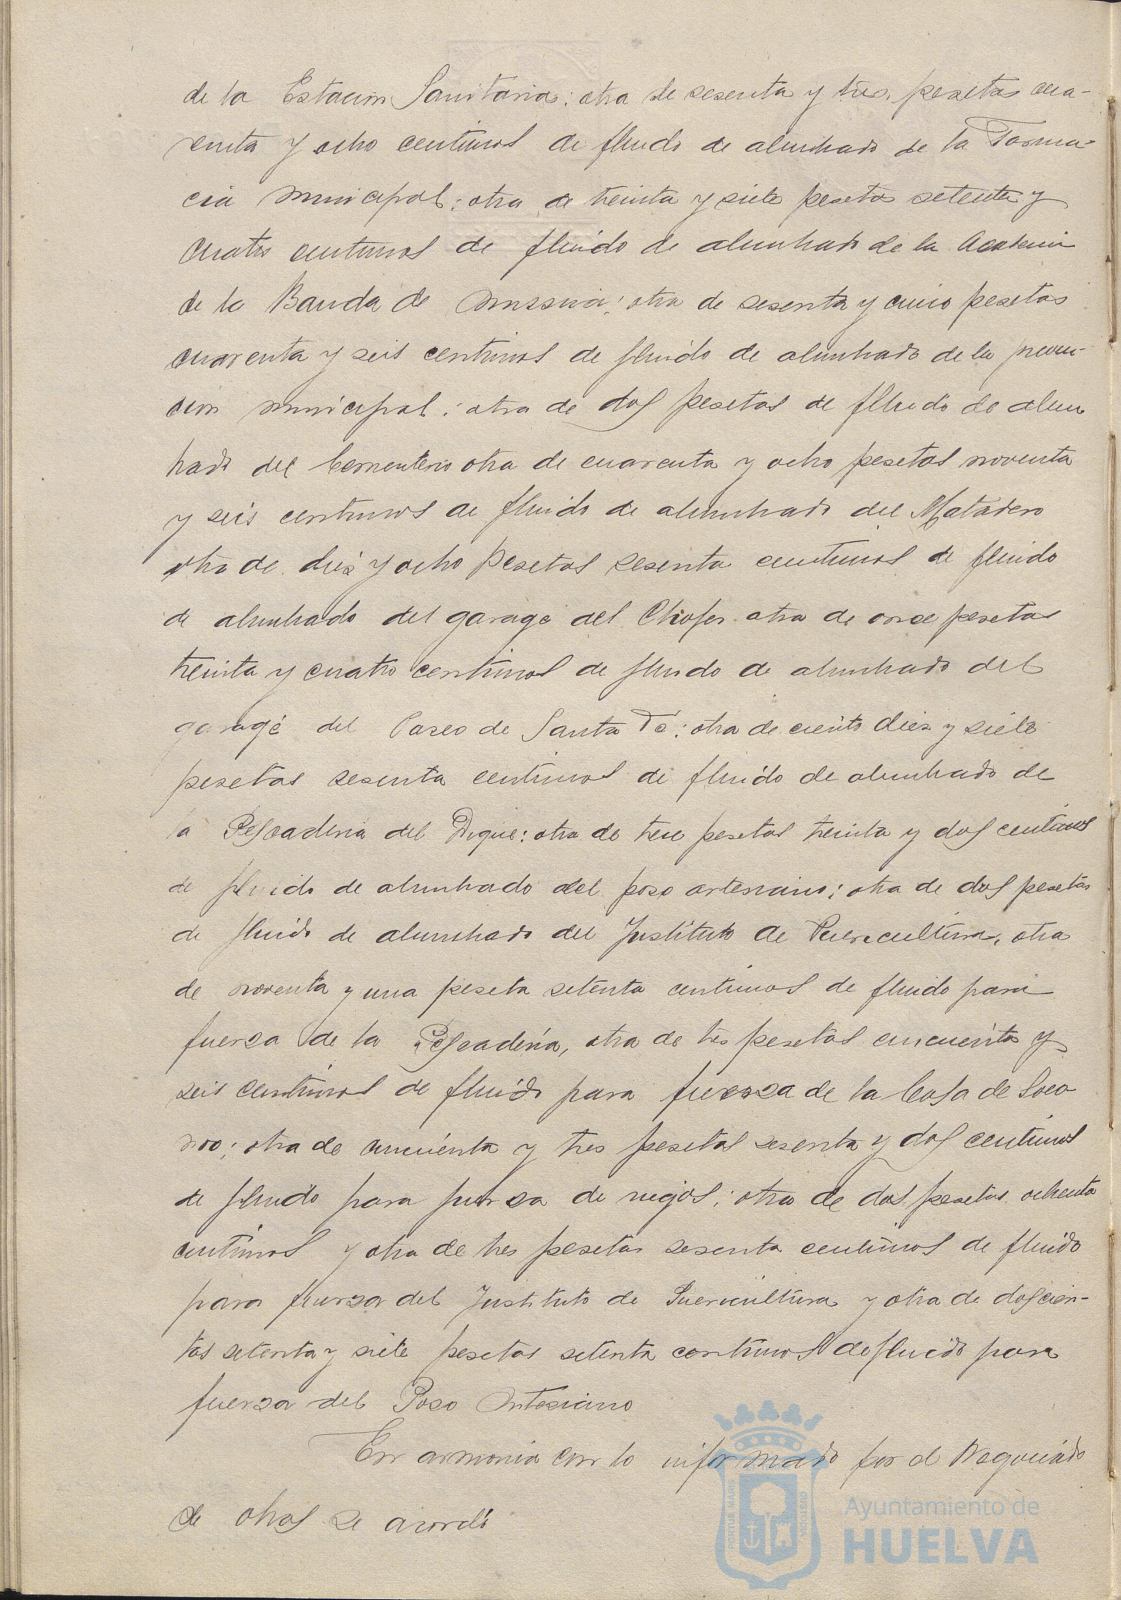 de la Estacion Sanitaria; otra de sesenta y tres pesetas cua-
renta y ocho centimos de fluido de alumbrado de la Farma-
cia municipal; otra de treinta y siete pesetas setenta y
cuatro centimos de fluido de alumbrado de la Academia
de la Banda de musica; otra de sesenta y cinco pesetas
cuarenta y seis centimos de fluido de alumbrado de la preven-
cion municipal; otra de dos pesetas de fluido de alum
brado del Cementerio otra de cuarenta y ocho pesetas noventa
y seis centimos de fluido de alumbrado del Matadero
otra de diez y ocho pesetas sesenta centimos de fluido
de alumbrado del garage del Chofer otra de once pesetas
treinta y cuatro centimos de fluido de alumbrado del
garage del Paseo de Santa Fé; otra de ciento diez y siete
pesetas sesenta centimos de fluido de alumbrado de
la Pescaderia del Dique; otra de tres pesetas treinta y dos centimos
de fluido de alumbrado del poso artesiano; otra de dos pesetas
de fluido de alumbrado del Instituto de Puericultura, otra
de noventa y una peseta setenta centimos de fluido para
fuerza de la Pescaderia, otra de tres pesetas cincuenta y
seis centimos de fluido para fuerza de la Casa de Soco
rro; otra de cincuenta y tres pesetas sesenta y dos centimos
de fluido para fuerza de riegos; otra de dos pesetas ochenta
centimos y otra de tres pesetas sesenta centimos de fluido
para fuerza del Instituto de Puericultura y otra de doscien-
tas setenta y siete pesetas setenta centimos de fluido para
fuerza del Poso Artesiano
En armonia con lo informado por el Negociado
de obras se acordó
Ayuntamiento de
HUELVA